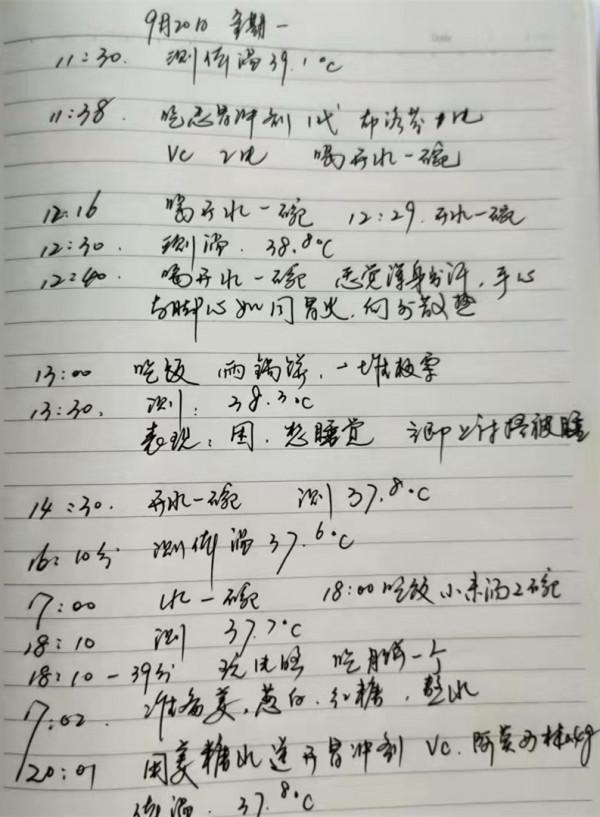 9月20日 星期一
11:30. 测体温39.1°C
11:38. 吃感冒冲剂1代 布洛芬1比
VC 2比 喝开水一碗
12:16 喝开水一碗 12:29.开水一碗
12:30. 测温. 38.8°C
12:40. 喝开水一碗 感觉浑身出汗,手心
与脚心如同冒火.向外散热
13:00 吃饭 两锅饼.一堆板栗
13:30. 测: 38.3°C
表现:困.想睡觉 立即上讨捂被睡
14:30. 开水一碗 测37.8°C
16:10分 测体温37.6°C
17:00 水一碗 18:00吃饭小米汤2碗
18:10 测 37.7°C
18:10-39分 吃月饼一个
17:02. 准备姜.葱白.红糖.
20:01 用姜糖水送开冒冲剂 VC.阿莫西林
体温. 37.8°C